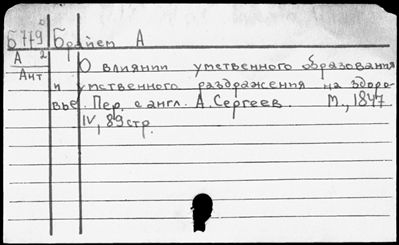 Б779 Брайем А
А 2
Ант О влиянии умственного образования
и умственного раздражения на здоро-
вье. Пер. с англ. А. Сергеев. М., 1847
IV, 89 стр.